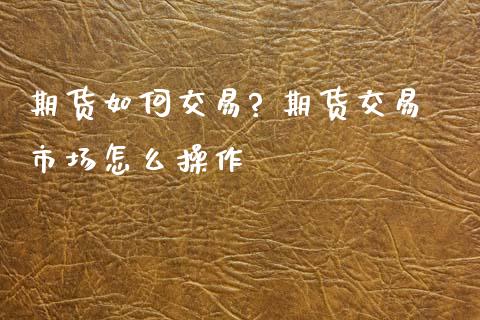 期货如何交易? 期货交易
市场怎么操作